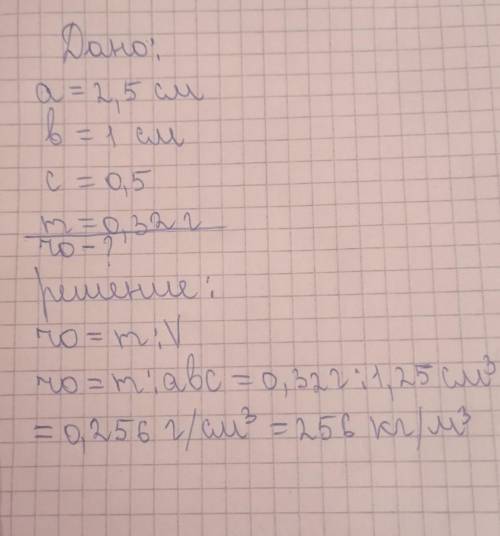 Дано:
a = 2,5 см
b = 1 см
c = 0,5
m = 0,32 г
ro - ?
решение:
ro = m : V
ro = m : abc = 0,32г : 1,25 см³
= 0,256 г/см³ = 256 кг/м³